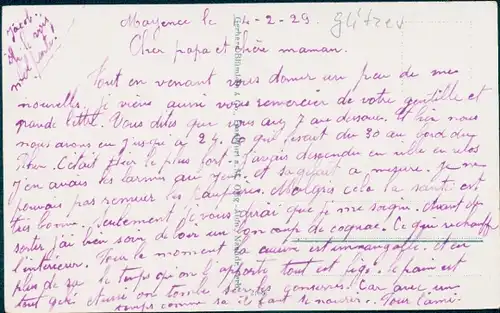 Mayence le 4-2-29
Glitzer
Jacob.
Cher papa et chère maman.
Tout en venant vous donner un peu de mes
nouvelles. Je viens aussi vous remercier de votre gentille et
grande lettre. Vous dites que vous avez 7 au dessous. Et bien nous
nous avons eu jusque à 24. Ce qui ferait du 30 au bord du
Rhin. C'était le plus fort. J'avais descendu en ville en vélos
J'en avais les larmes aux yeux. et sa gelait a mesure. Je ne
pouvais pas remuer les paupières. Malgrès cela la santé est
très bonne. Seulement je vous dirai que je me soigne. Avant de
sortir j'ai bien soin de boire un bon coup de cognac. Ce qui réchauffe
l'intérieur. Pour le moment la cuisine est immangeable. et en
plus de sa le temps qu'on l'apporte tout est figé. le pain est
tout gelé et on tombe sur les conserves. Car avec un
temps comme sa il faut se nourrir. Pour